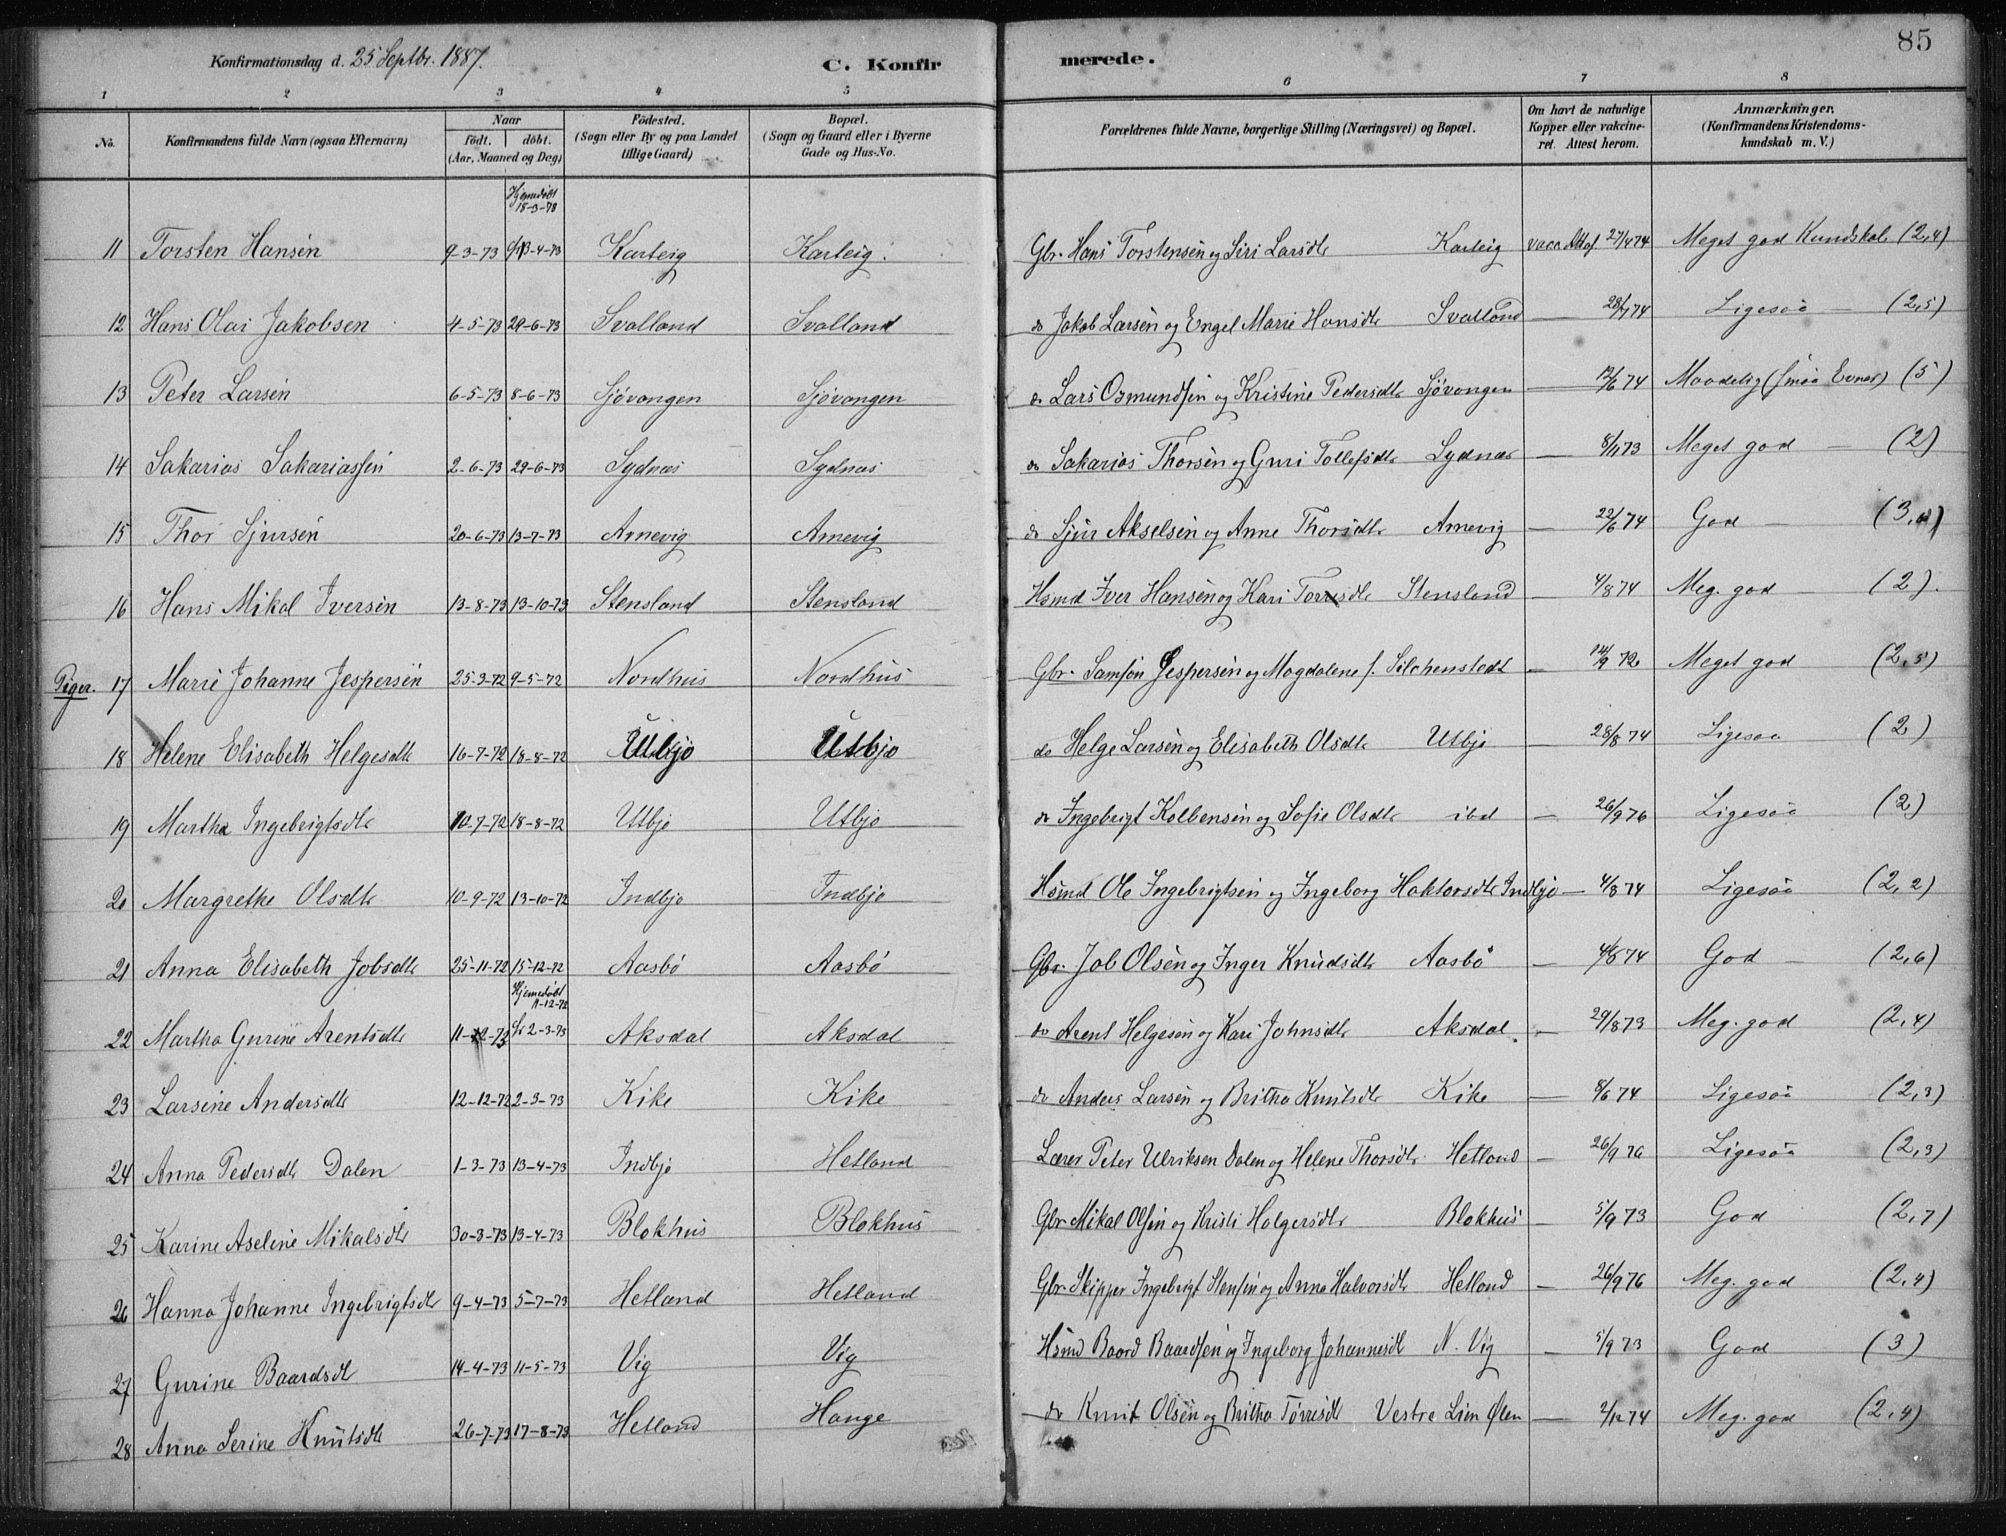 85
Konfirmationsdag d. 25 Septbr. 1887.
C. Konfir merede.
1 2 3 4 5 6 7 8
No. Konfirmandens fulde Navn (ogsaa Efternavn) Naar Födt. döbt. (Aar, Maaned og Dag) Födested. (Sogn eller By og paa Landet tillige Gaard) Bopæl. (Sogn og Gaard eller i Byerne Gade og Hus-No. Forældrenes fulde Navne, borgerlige Stilling (Næringsvei) og Bopæl. Om havt de naturlige Kopper eller vakcineret. Attest herom. Anmærkninger. (Konfirmandens Kristendomskundskab m. V.)
Hjemedöbt 18-3-73
11 Torsten Hansen 9-3-73 13-4-73 Karteig Karteig Gbr. Hans Torstensen og Siri Larsdt. Karteig vacc. Att. af 27/4 74 Meget god Kundskab (2,4)
12 Hans Olai Jakobsen 4-5-73 29-6-73 Svalland Svalland do Jakob Larsen og Engel Marie Hansdt. Svalland — 28/7 74 Ligesaa — (2,5)
13 Peter Larsen 6-5-73 8-6-73 Sjövangen Sjövangen do Lars Osmundsen og Kristine Pedersdt. Sjövangen — 12/6 74 Maadelig (smaa Evner) (5)
14 Sakarias Sakariassen 2-6-73 29-6-73 Sydnæs Sydnæs do Sakarias Thorsen og Guri Tollefsdt. Sydnæs — 8/11 73 Meget god — (2)
15 Thor Sjursen 20-6-73 13-7-73 Arnevig Arnevig do Sjur Akselsen og Anne Thorsdt. Arnevig — 22/6 74 God — (3,4)
16 Hans Mikal Iversen 13-8-73 13-10-73 Stensland Stensland Hsmd Iver Hansen og Kari Torresdt. Stensland — 4/8 74 Meg. god — (2).
Piger. 17 Marie Johanne Jespersen 25-3-72 9-5-72 Nordhus Nordhus Gbr. Samson Jespersen og Magdalene f. Silchenstedt — 14/9 72 Meget god (2,5)
18 Helene Elisabeth Helgesdt. 16-7-72 18-8-72 Utbjo Utbjo do Helge Larsen og Elisabeth Olsdt. Utbjo — 28/8 74 Ligesaa (2)
19 Martha Ingebrigtsdt. 10-7-72 18-8-72 Utbjo Utbjo do Ingebrigt Kolbensen og Sofie Olsdt. ibd — 26/9 76 Ligesaa (2)
20 Margrethe Olsdt. 10-9-72 13-10-72 Indbjo Indbjo Hsmd Ole Ingebrigtsen og Ingeborg Haktorsdt. Indbjo — 4/8 74 Ligesaa (2,2)
21 Anna Elisabeth Jobsdt. 25-11-72 15-12-72 Aasbö Aasbö Gbr. Job Olsen og Inger Knudsdt. Aasbö — 4/8 74 God — (2,6)
Hjemedöbt 11-12-72
22 Martha Gurine Arentsdt. 11-12-72 2-3-73 Aksdal Aksdal do Arent Helgesen og Kari Johnsdt. Aksdal — 29/8 73 Meg. god (2,4)
23 Larsine Andersdt. 12-12-72 2-3-73 Kike Kike do Anders Larsen og Britha Knutsdt. Kike — 8/6 74 Ligesaa (2,3)
24 Anna Pedersdt. Dalen 1-3-73 13-4-73 Indbjo Hetland Lærer Peter Ulriksen Dalen og Helene Thorsdt. Hetland — 26/9 76 Ligesaa (2,3)
25 Karine Aseline Mikalsdt. 30-3-73 13-4-73 Blokhus Blokhus Gbr. Mikal Olsen og Kristi Holgersdt. Blokhus — 5/9 73 God (2,7)
26 Hanna Johanne Ingebrigtsdt. 9-4-73 5-7-73 Hetland Hetland Gbr. Skipper Ingebrigt Stensen og Anna Halvorsdt. Hetland — 26/9 76 Meg. god (2,4)
27 Gurine Baardsdt 14-4-73 11-5-73 Vig Vig Hsmd Baard Baardsen og Ingeborg Johannesdt N. Vig — 5/9 73 God (3)
28 Anna Serine Knutsdt. 26-7-73 17-8-73 Hetland Hauge do Knut Olsen og Britha Törresdt Vestre Lien Ölen — 2/12 74 Meg. god (2,4)